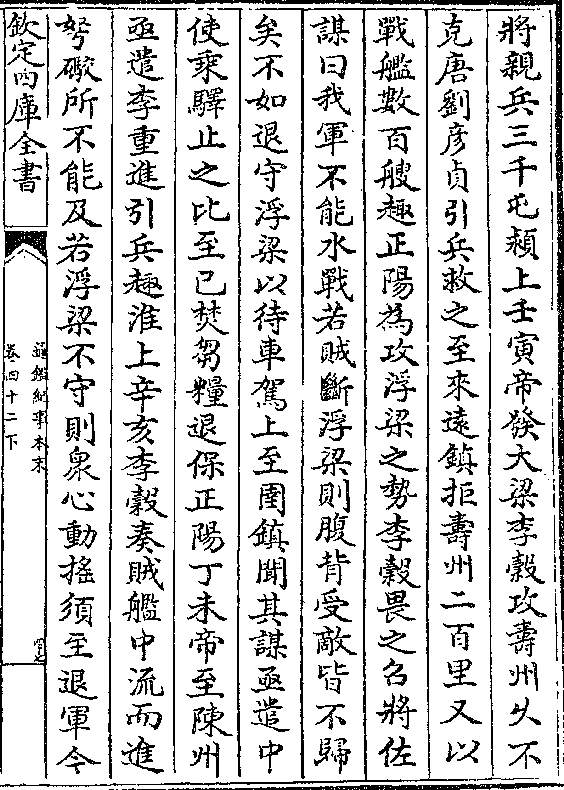 將親兵三千屯潁上壬寅帝發大梁李穀攻壽州久不
克唐劉彥貞引兵救之至來遠鎮拒壽州二百里又以
戰艦數百艘趣正陽為攻浮梁之勢李穀畏之召將佐
謀曰我軍不能水戰若賊斷浮梁則腹背受敵皆不歸
矣不如退守浮梁以待車駕上至圉鎮聞其謀亟遣中
使乘驛止之比至已焚芻糧退保正陽丁未帝至陳州
亟遣李重進引兵趣淮上辛亥李穀奏賊艦中流而進
弩礮所不能及若浮梁不守則衆心動搖須至退軍今
欽定四庫全書
通鑑紀事本末
卷四十二下